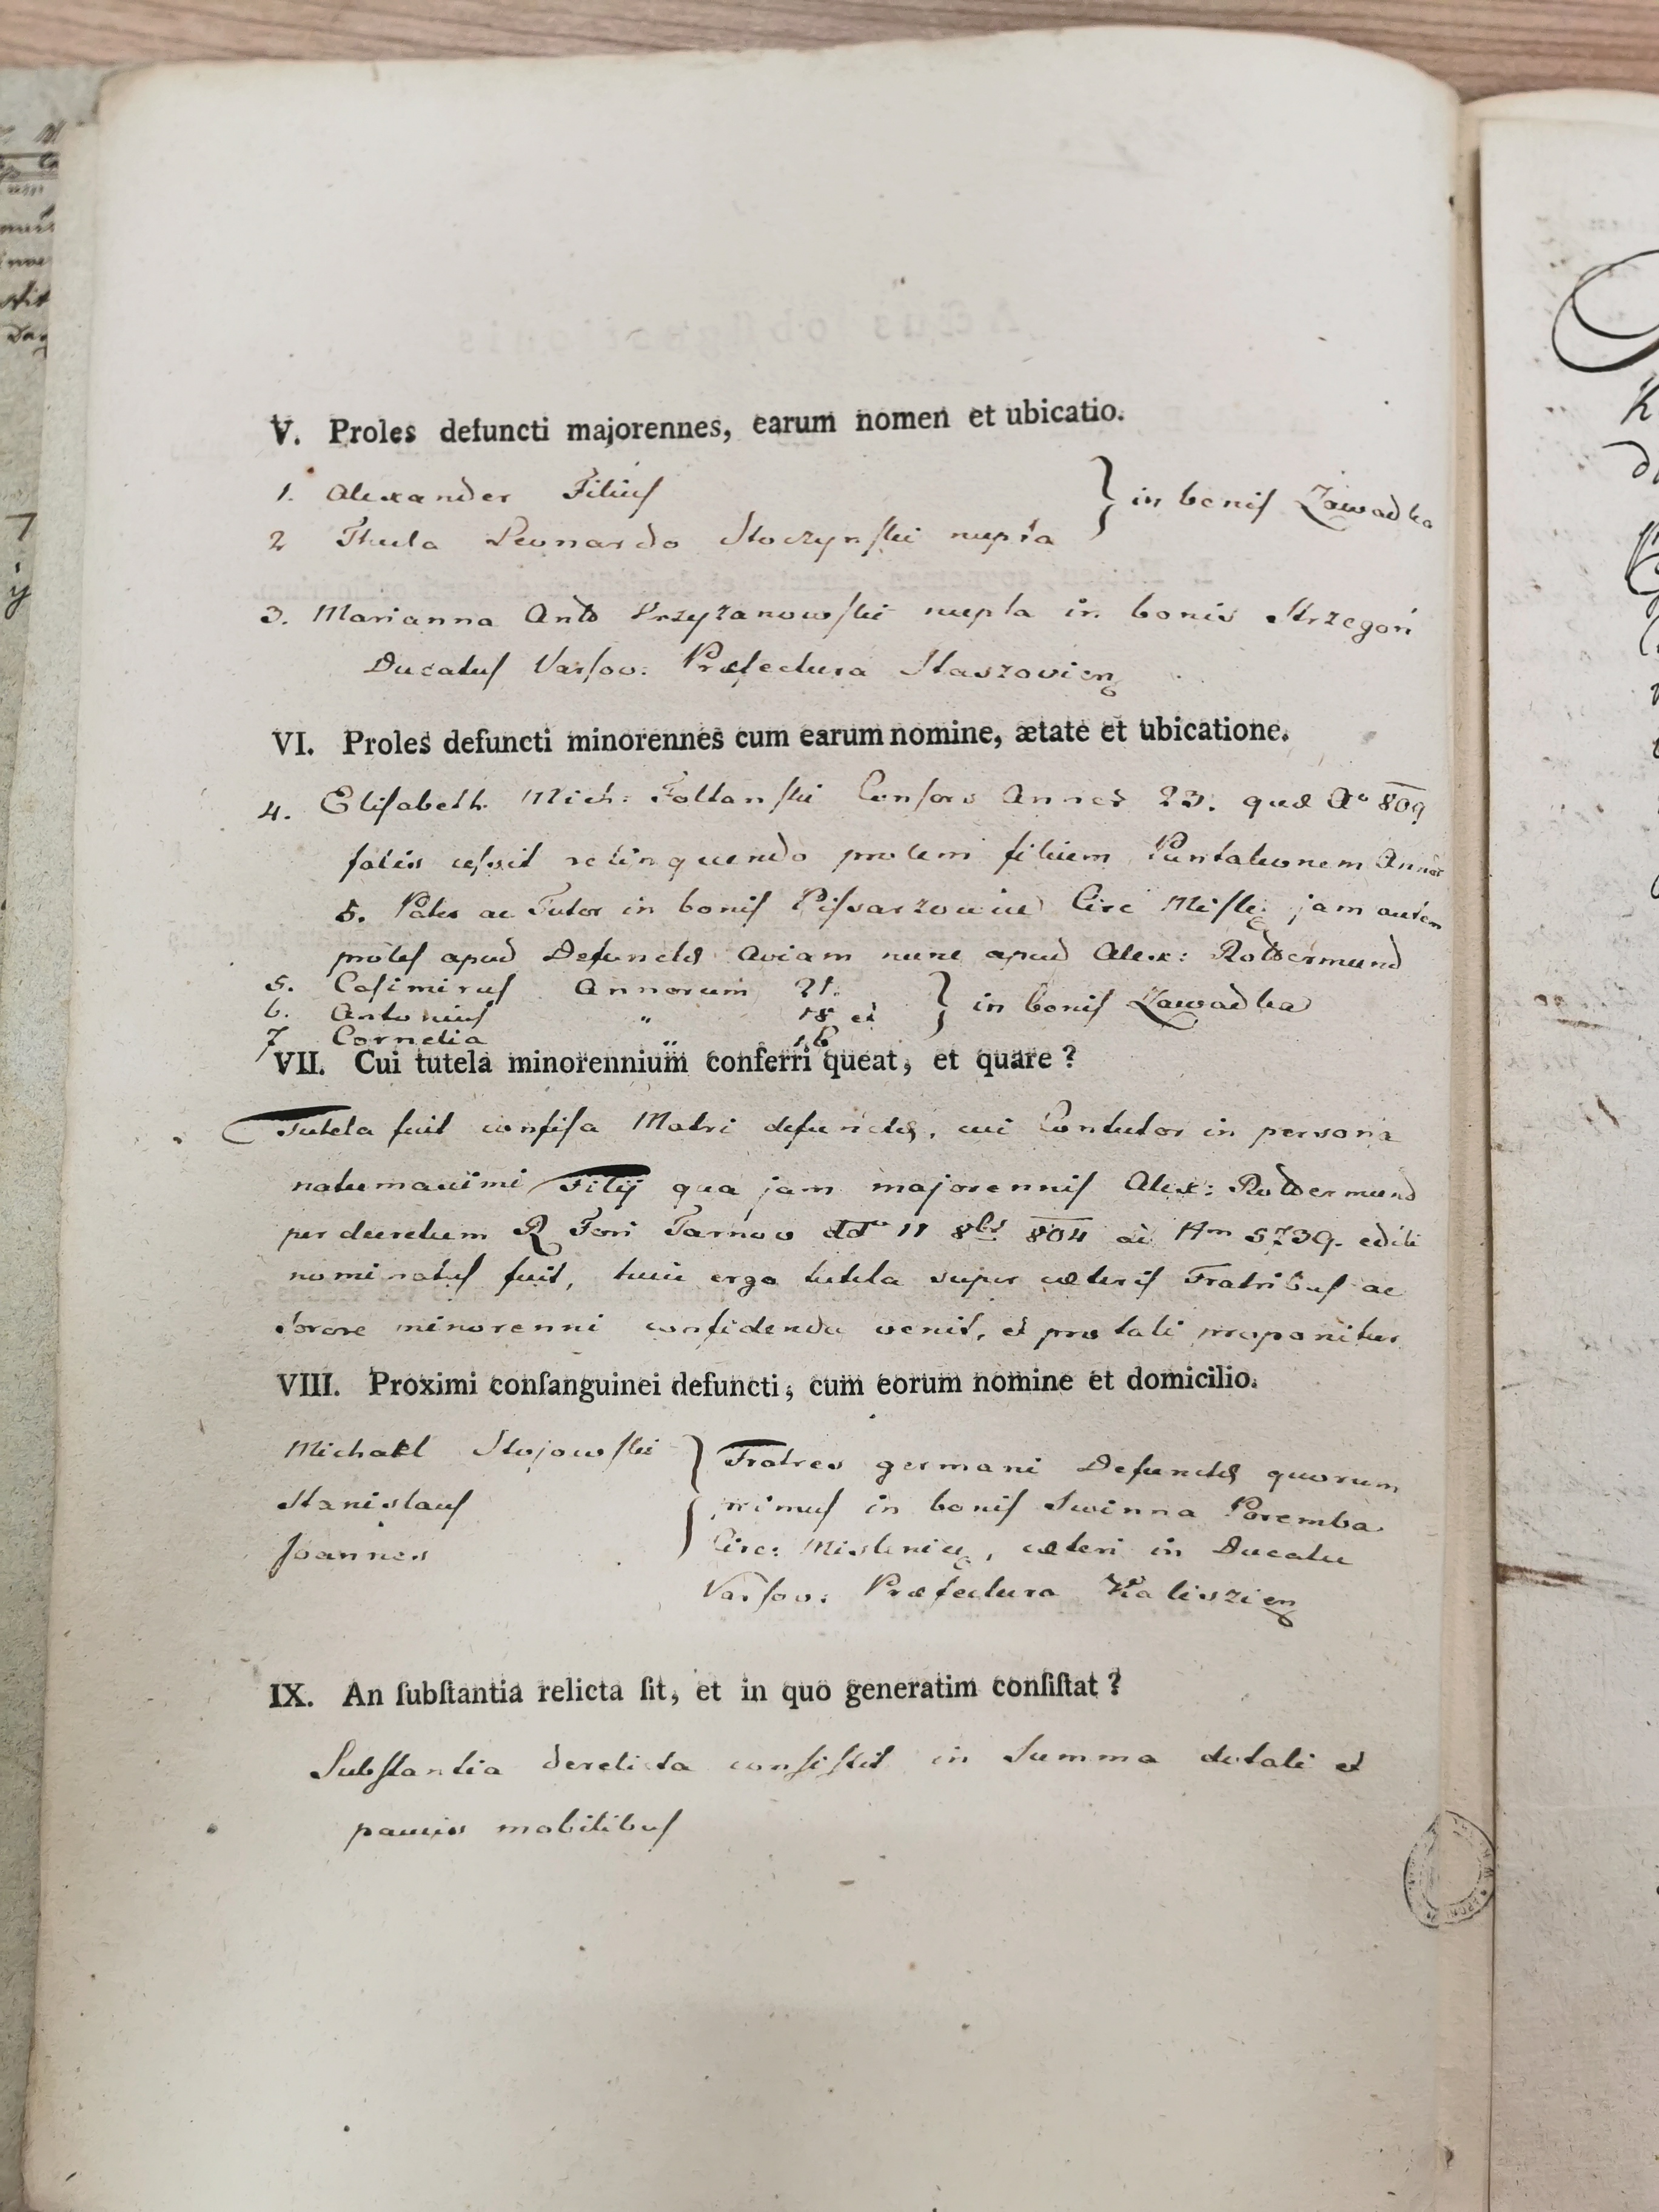 V. Proles defuncti majorennes, earum nomen et ubicatio.
1. Alexander Filius } in bonis Zawadka
2 Thecla Leonardo Stoczynski nupta
3. Marianna Anto Krzyżanowski nupta in bonis Strzegoń
Ducatus Varsov: Præfectura Staszovien
VI. Proles defuncti minorennes cum earum nomine, ætate et ubicatione.
4. Elisabeth Mich: Foltanski Consors Annor 23. quæ Aº 809
fatis cessit relinquendo prolem filium Pantaleonem Annor
5. Pater ac Tutor in bonis Pissarzowice Circ Misle: jam autem
proles apud Defunctæ Aviam nunc apud Alex: Rottermund
5. Casimirus Annorum 21.
6. Antonius " 18 et } in bonis Zawadka
7 Cornelia " 16
VII. Cui tutela minorennium conferri queat, et quare?
Tutela fuit confisa Matri defunctæ, cui Contutor in persona
natumaximi Filij qua jam majorennis Alex: Rottermund
per decretum R Fori Tarnov ddº 11 8br 804 ad Nm 5739. editi
nominatus fuit, huic ergo tutela super cæteris Fratribus ac
Sorore minorenni confidenda venit, et pro tali proponitur
VIII. Proximi conſanguinei defuncti, cum eorum nomine et domicilio.
Michael Stojowski } Fratres germani Defunctæ quorum
Stanislaus primus in bonis Swinna Poremba
Joannes Circ: Mislenic, cæteri in Ducatu
Varsov: Præfectura Kaliszien
IX. An ſubſtantia relicta ſit, et in quo generatim conſiſtat?
Substantia derelicta consistit in Summa dotali et
paucis mobilibus